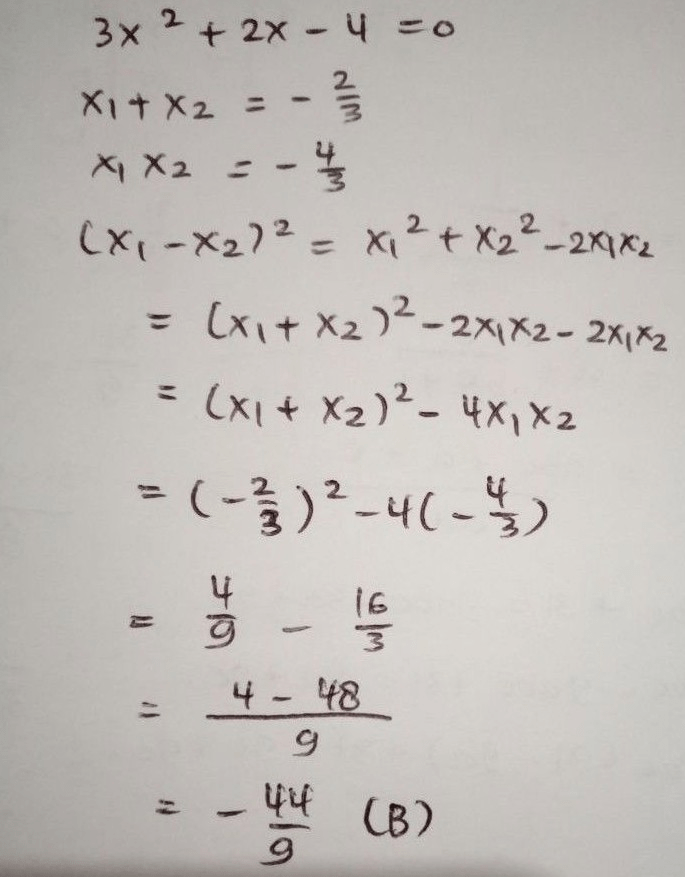 3x² + 2x - 4 = 0
x₁ + x₂ = - 2/3
x₁ x₂ = - 4/3
(x₁ - x₂)² = x₁² + x₂² - 2x₁x₂
= (x₁ + x₂)² - 2x₁x₂ - 2x₁x₂
= (x₁ + x₂)² - 4x₁x₂
= (- 2/3)² - 4(- 4/3)
= 4/9 - 16/3
= (4 - 48)/9
= - 44/9 (B)